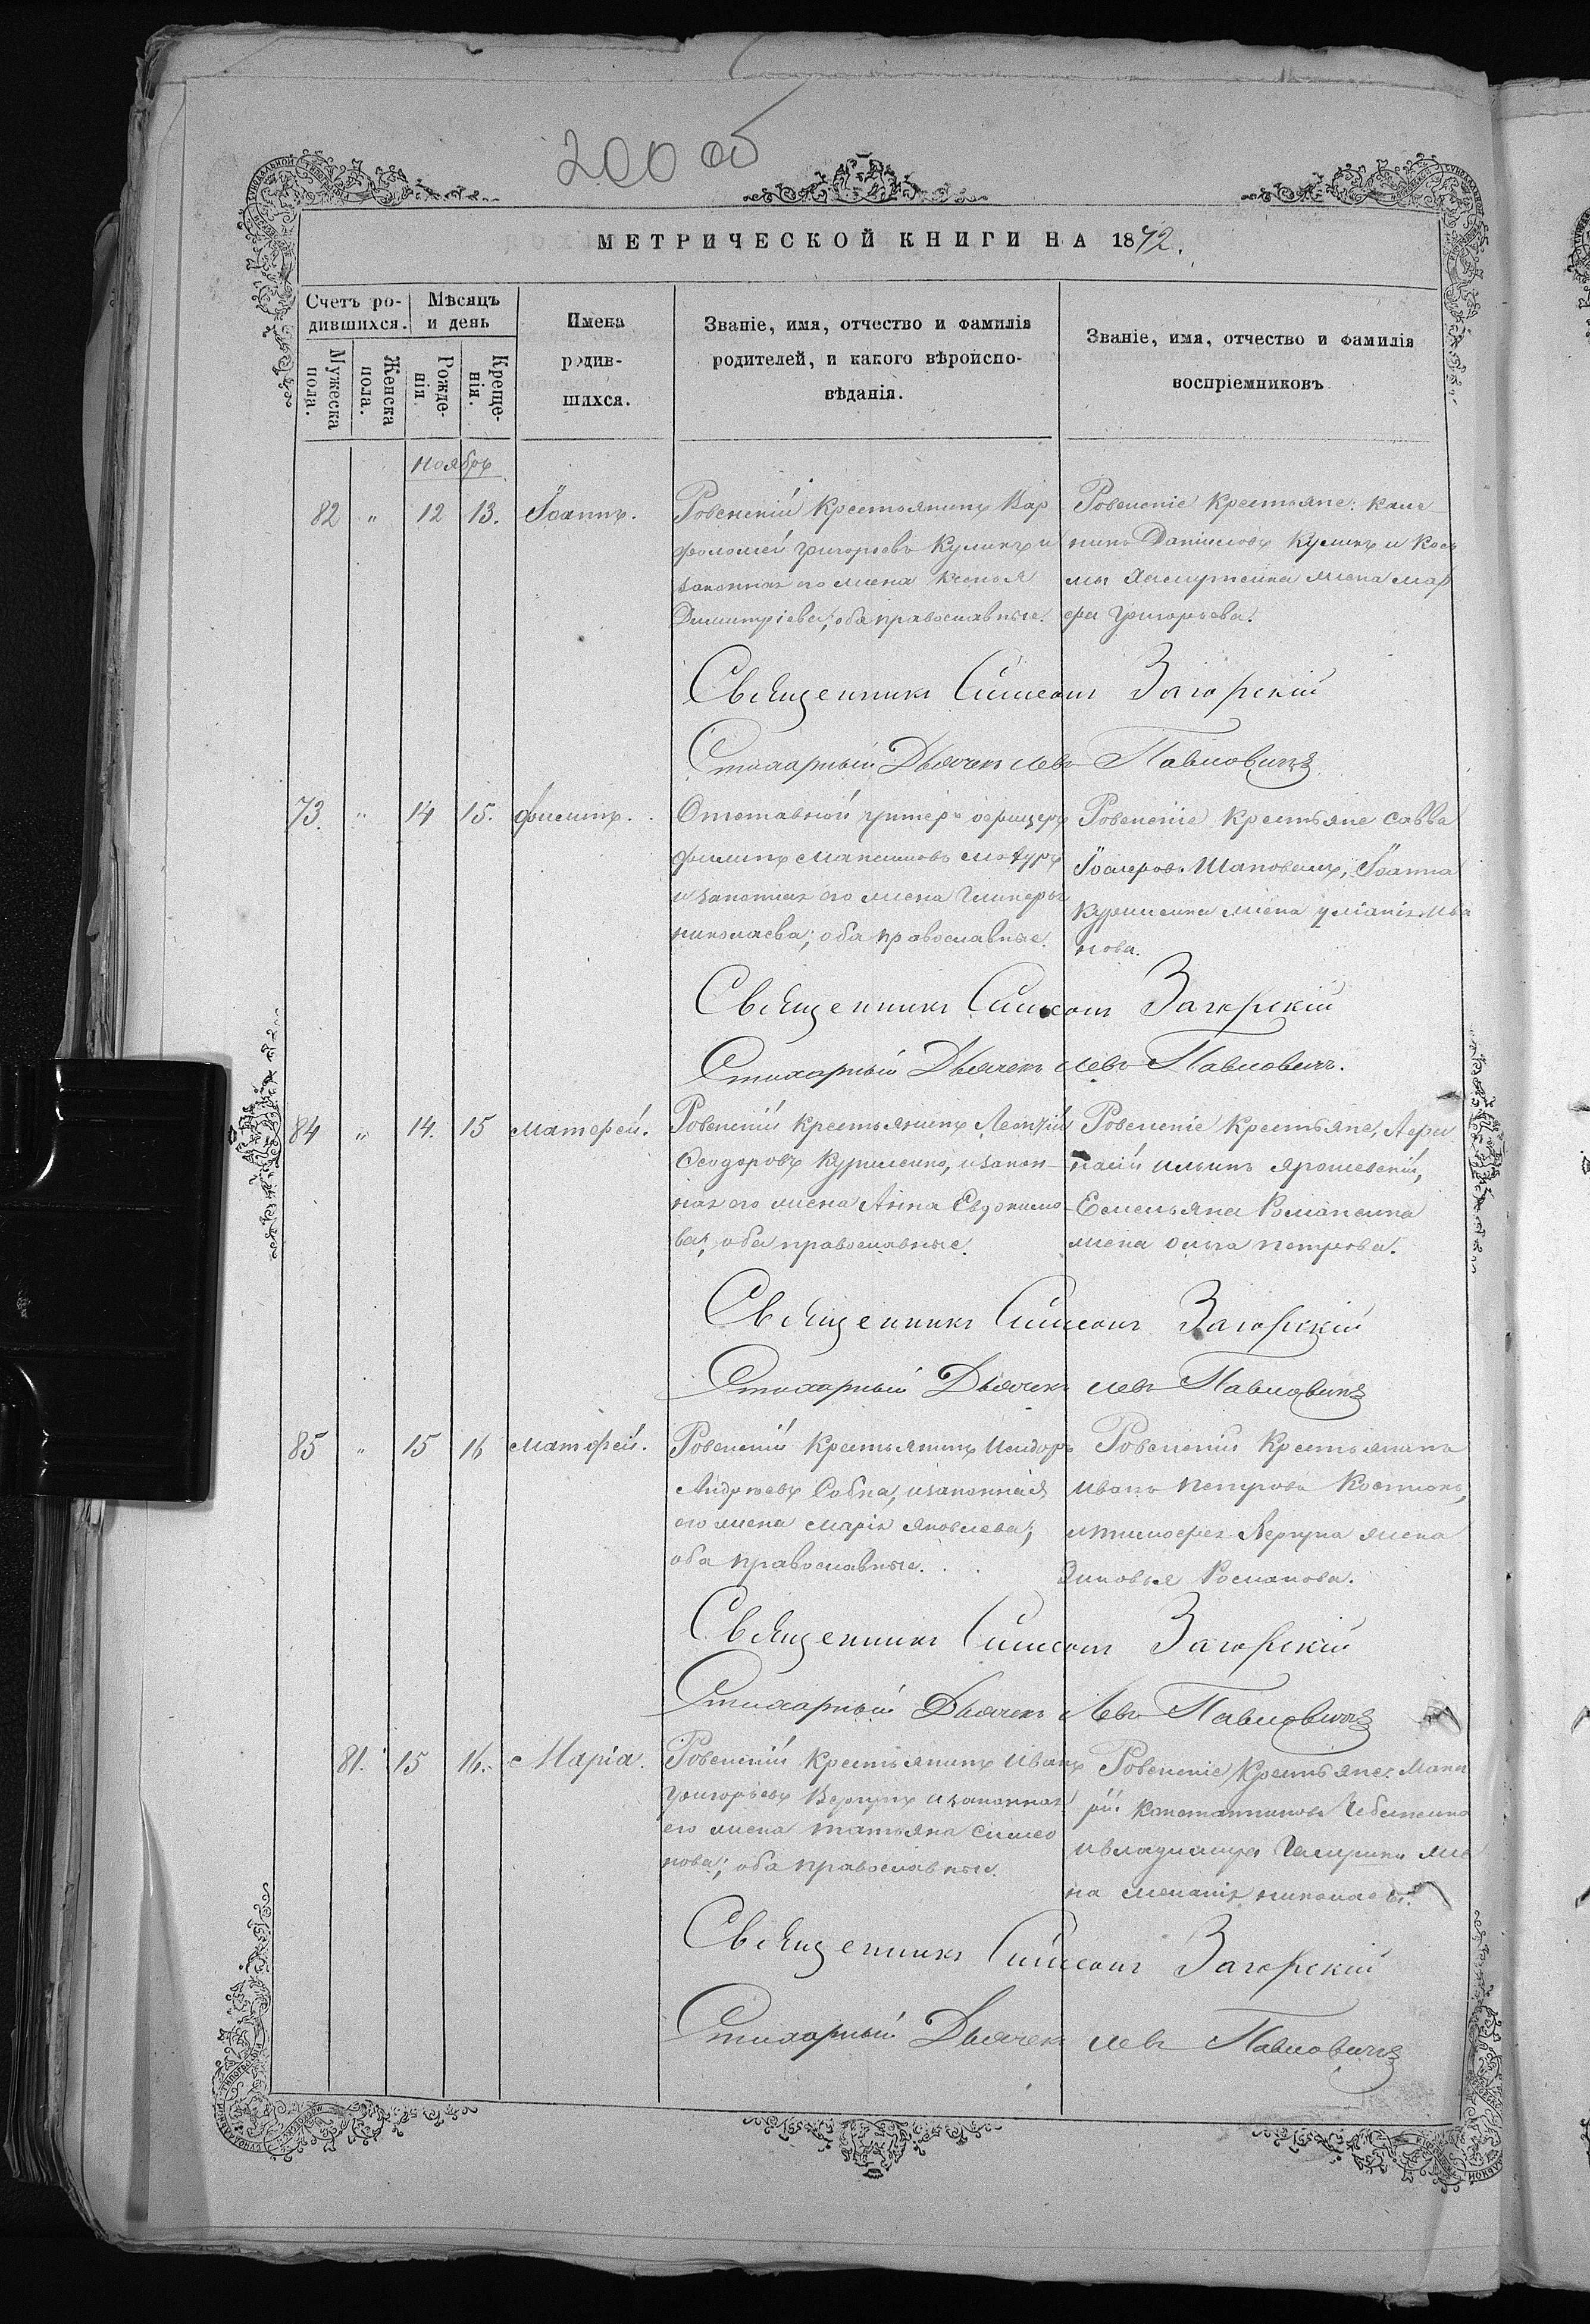 200 об
МЕТРИЧЕСКОЙ КНИГИ НА 1872.
Счетъ родившихся.
Мѣсяцъ и день
Имена родившихся.
Званіе, имя, отчество и фамилія родителей, и какого вѣроисповѣданія.
Званіе, имя, отчество и фамилія воспріемниковъ
Мужеска пола.
Женска пола.
Рожденія.
Крещенія.
Ноябрь
82 " 12 13. Іоаннъ.
Ровенскій Крестьянинъ Вар
фоломей Григорьевъ Куликъ и
законная его жена Ксенья
Димитріева; оба православные.
Ровенскіе Крестьяне: Кале
никъ Даниловъ Куликъ и Козь
мы жена Мар
фа Григорьева.
Священникъ Симеонъ Загорскій
Стихарный Дьячекъ Левъ Павловичъ
73. " 14 15. Филиппъ.
Отставной Унтеръ офицеръ
Филиппъ Максимовъ
и законная его жена Гликерья
Николаева; оба православные.
Ровенскіе Крестьяне Савва
Шаповалъ, Іоанна
Куриленка жена Уліанія Ива
нова.
Священникъ Симеонъ Загорскій
Стихарный Дьячекъ Левъ Павловичъ.
84 " 14. 15 Матфей.
Ровенскій Крестьянинъ Леонтій
Феодоровъ Куриленко, и закон
ная его жена Анна Евдокимо
ва; оба православные.
Ровенскіе Крестьяне, Афа
насій Ильинъ Ярошевскій,
Емельяна Романенка
жена Ольга Петрова.
Священникъ Симеонъ Загорскій
Стихарный Дьячекъ Левъ Павловичъ
85 " 15 16 Матфей.
Ровенскій Крестьянинъ Исидоръ
Андреевъ Собка, и законная
его жена Марія Яковлева;
оба православные.
Ровенскій Крестьянинъ
Иванъ Петровъ Костюкъ,
и Тимофея Вергуна жена
Зиновья Романова.
Священникъ Симеонъ Загорскій
Стихарный Дьячекъ Левъ Павловичъ
81. 15 16. Марія.
Ровенскій Крестьянинъ Иванъ
Григорьевъ Вергунъ и законная
его жена Татьяна Симео
нова; оба православные.
Ровенскіе Крестьяне: Мака
рій Константиновъ
и Владиміра же
на Меланія Николаева.
Священникъ Симеонъ Загорскій
Стихарный Дьячекъ Левъ Павловичъ